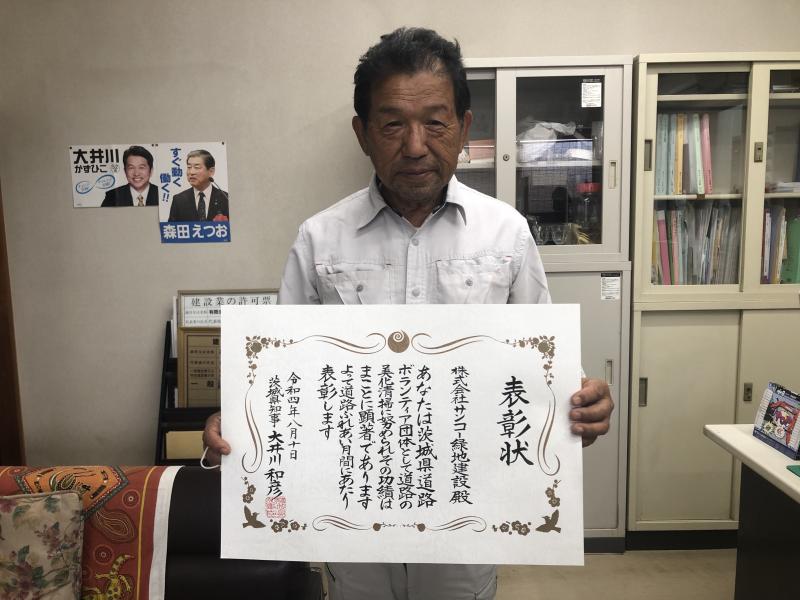 大井川
かずひこ
すぐ動く
働く!!
森田えつお
建設業の許可票
表彰状
株式会社サンコー緑地建設 殿
あなたは茨城県道路
ボランティア団体として道路の
美化清掃に努められその功績は
まことに顕著であります
よって道路ふれあい月間にあたり
表彰します
令和四年八月十日
茨城県知事 大井川 和彦